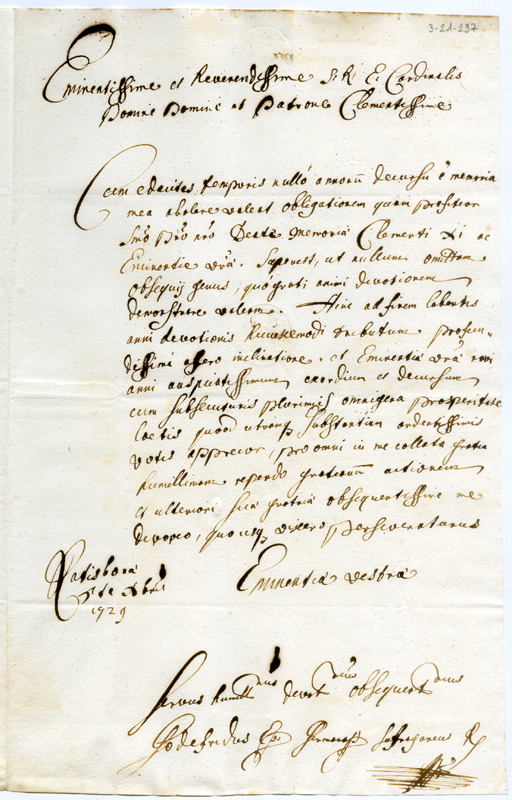 3-21-237
Eminentissime et Reverendissime S. R. E. Cardinalis
Domine Domine et Patrone Clementissime
Cum edacitas temporis nullo annorũ decursu è memoria
mea abolere valeat obligationem quam profiteor
Smo Pri nro Beatae Memoriae Clementi XI ac
Eminentiae vrae. Superest, ut nullum omittam
obsequij genus, quo grati animi devotionem
demonstrare valeam. Hinc ad finem labentis
anni devotionis huiuscemodi tributum profun-
dissima offero inclinatione, et Eminentiae vrae novi
anni auspicatissimum exordium et decursum
cum subsecuturis plurimis omnigena prosperitate
laetis quoad utramq substantiam ardentissimis
votis apprecor, pro omni in me collata gratia
humillimam rependo gratiarum actionem
et ulteriori suae gratiae obsequentissime me
devoveo, quousq vixero perseveraturus
Eminentiae vestrae
Ratisbona
Xbris
1729
Servus humillmus devotmus obsequentmus
Godefridus Epũs Suffraganeus